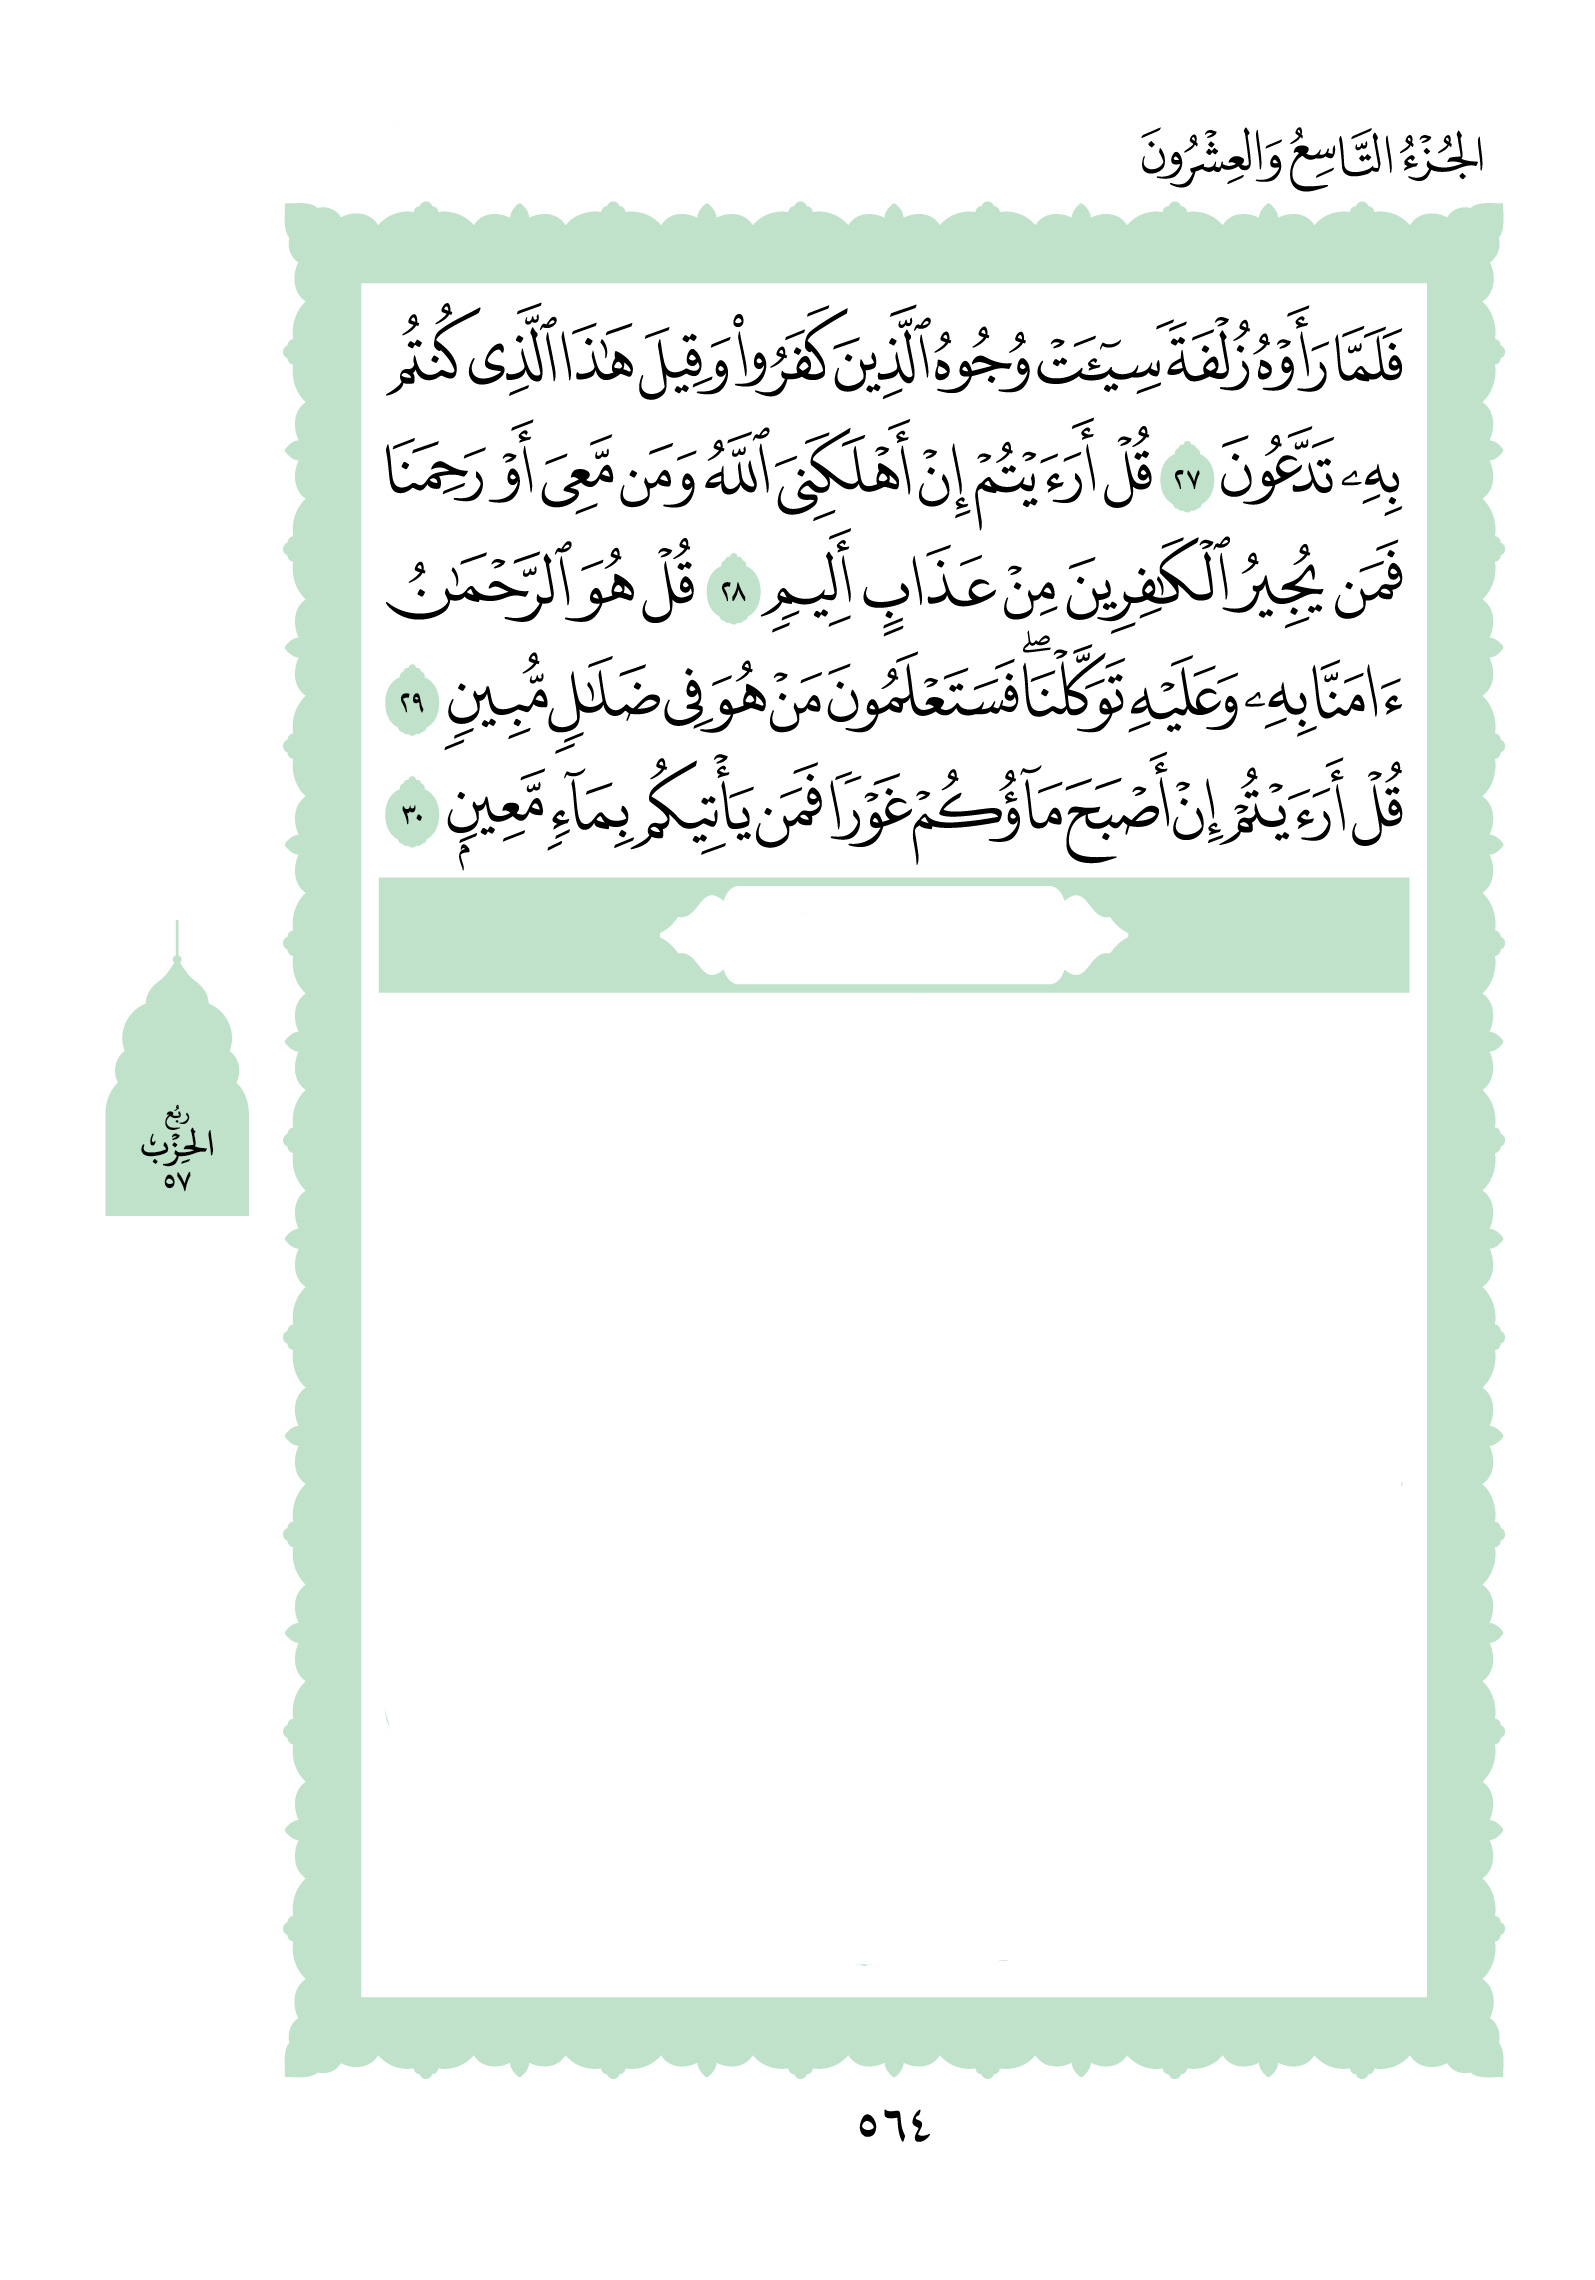 الجُزْءُ التَّاسِعُ وَالعِشْرُونَ
فَلَمَّا رَأَوْهُ زُلْفَةً سِيٓـَٔتْ وُجُوهُ ٱلَّذِينَ كَفَرُوا۟ وَقِيلَ هَٰذَا ٱلَّذِى كُنتُم
بِهِۦ تَدَّعُونَ ٢٧ قُلْ أَرَءَيْتُمْ إِنْ أَهْلَكَنِىَ ٱللَّهُ وَمَن مَّعِىَ أَوْ رَحِمَنَا
فَمَن يُجِيرُ ٱلْكَٰفِرِينَ مِنْ عَذَابٍ أَلِيمٍ ٢٨ قُلْ هُوَ ٱلرَّحْمَٰنُ
ءَامَنَّا بِهِۦ وَعَلَيْهِ تَوَكَّلْنَا ۖ فَسَتَعْلَمُونَ مَنْ هُوَ فِى ضَلَٰلٍ مُّبِينٍ ٢٩
قُلْ أَرَءَيْتُمْ إِنْ أَصْبَحَ مَآؤُكُمْ غَوْرًا فَمَن يَأْتِيكُم بِمَآءٍ مَّعِينٍۭ ٣٠
رُبُع
الحِزْبْ
٥٧
٥٦٤